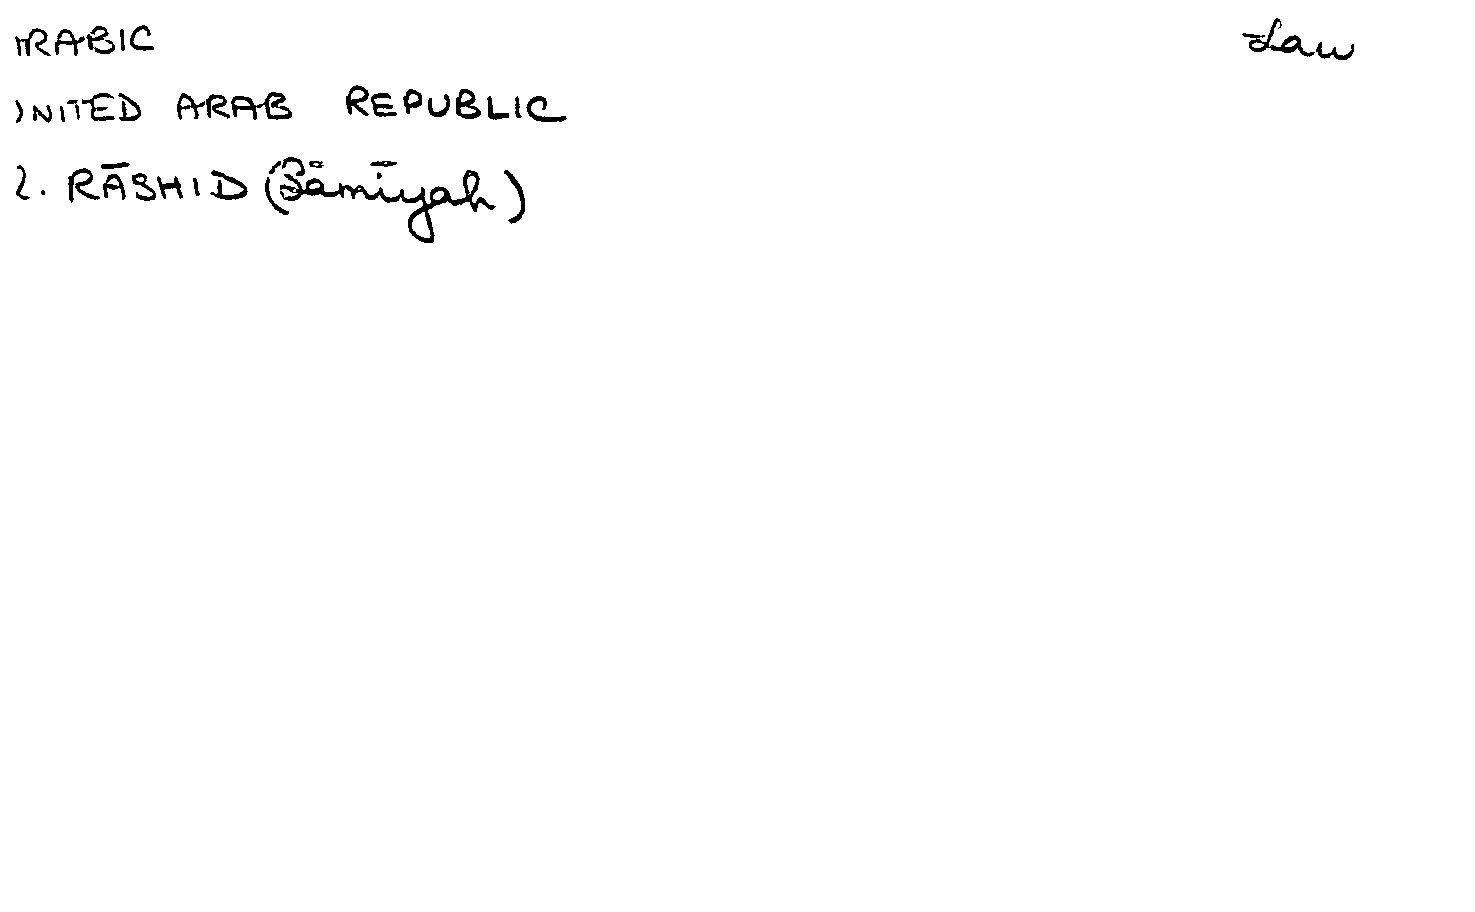 ARABIC Law
UNITED ARAB REPUBLIC
2. RĀSHID (Sāmīyah)